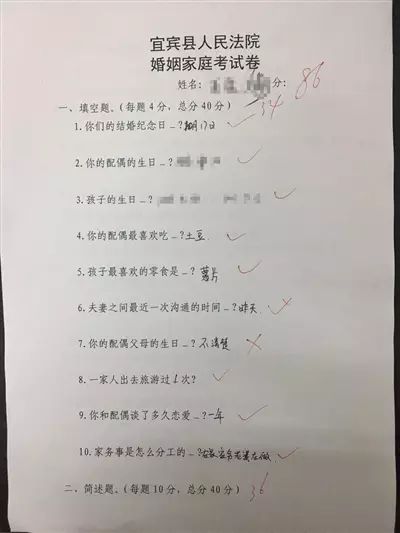 宜宾县人民法院
婚姻家庭考试卷
姓名: 分: 86
一、填空题、(每题4分，总分40分) 34
1.你们的结婚纪念日_?月17日
2.你的配偶的生日_?
3.孩子的生日_?
4.你的配偶最喜欢吃_?土豆
5.孩子最喜欢的零食是_?薯片
6.夫妻之间最近一次沟通的时间_?昨天
7.你的配偶父母的生日_?不清楚
8.一家人出去旅游过1次?
9.你和配偶谈了多久恋爱_?一年
10.家务事是怎么分工的_?
二、简述题、(每题10分，总分40分) 36